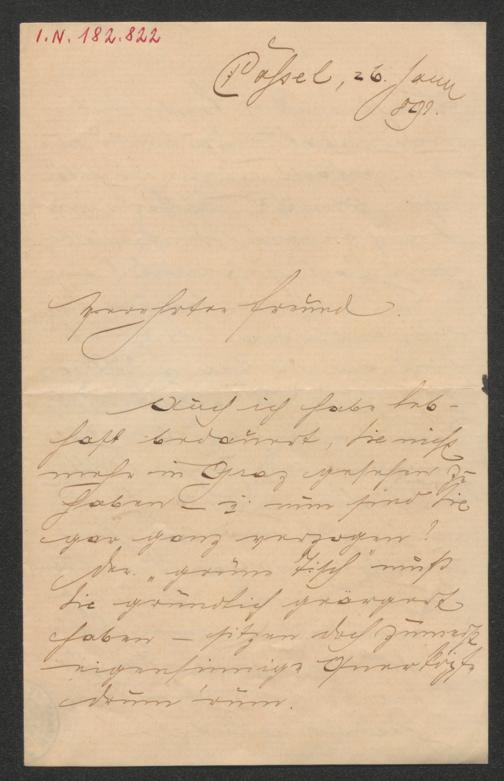 I.N. 182.822
Cassel, 26. Jänn
891.
Verehrter Freund.
Auch ich habe leb-
haft bedauert, Sie nicht
mehr in Graz gesehen zu
haben – u. nun sind Sie
gar ganz verzogen?
Der „grüne Tisch" muß
Sie gründlich geärgert
haben – sitzen doch zumeist
eigensinnige Querköpfe
drum 'rum.